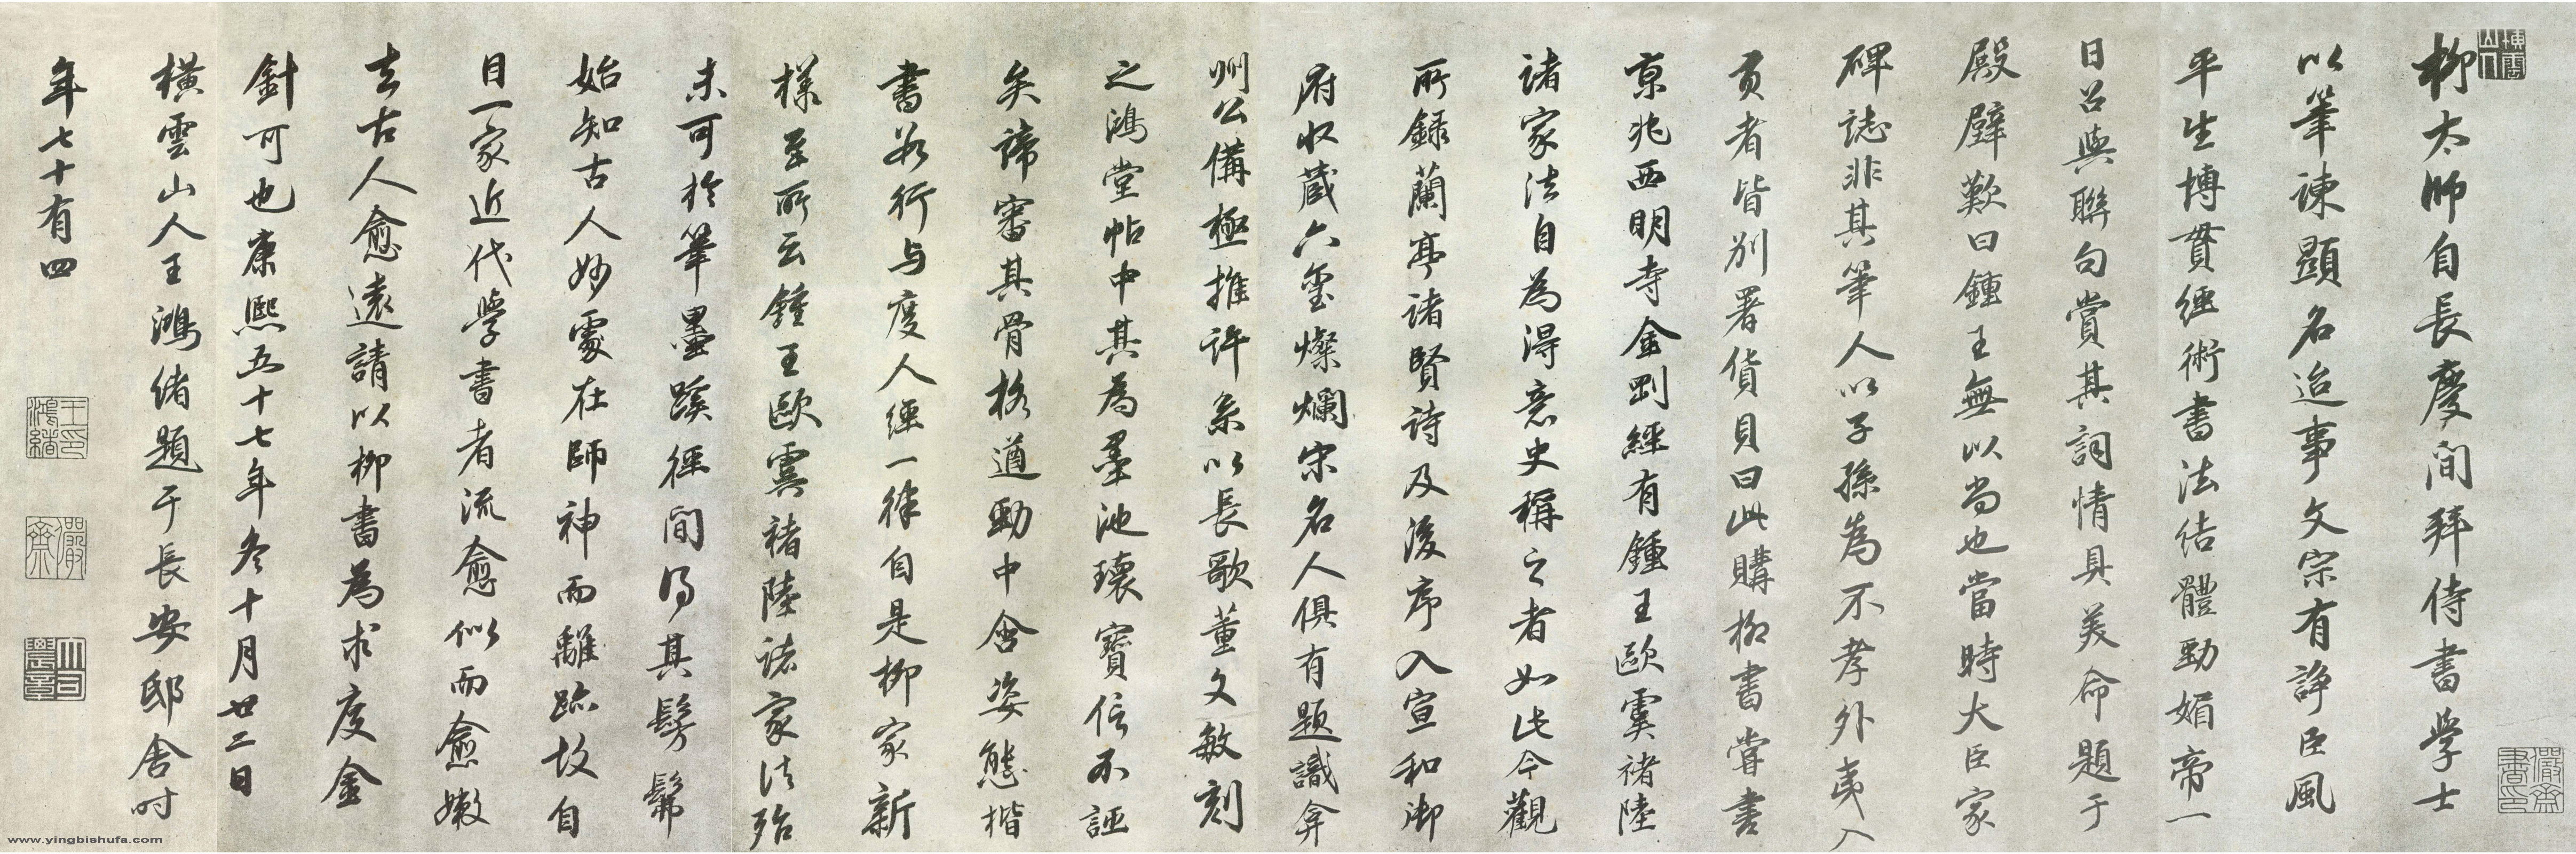 柳太師自長慶間拜侍書學士
以筆諫顯名迨事文宗有諍臣風
平生博貫經術書法结體勁媚帝一
日召與聯句賞其詞情具美命題于
殿壁歎曰鍾王無以尚也當時大臣家
碑誌非其筆人以子孫為不孝外夷入
貢者皆別署貨貝曰此購柳書嘗書
京兆西明寺金剛經有鍾王歐虞褚陸
諸家法自為得意史稱之者如此今觀
所録蘭亭諸賢詩及後序入宣和御
府收蔵六璽燦爛宋名人俱有題識弇
州公備極推許系以長歌董文敏刻
之鴻堂帖中其為墨池瓌寶信不誣
矣諦審其骨格遒勁中含姿態楷
書若行与度人經一律自是柳家新
樣至所云鍾王歐虞褚陸諸家法殆
未可於筆墨蹊徑間得其髣髴
始知古人妙處在師神而離跡故自
目一家近代學書者流愈似而愈嫩
去古人愈遠請以柳書為求度金
針可也康熙五十七年冬十月廿二日
橫雲山人王鴻緒題于長安邸舍时
年七十有四
橫雲山人
儼齋書印
王鴻緒印
儼齋
www.yingbishufa.com